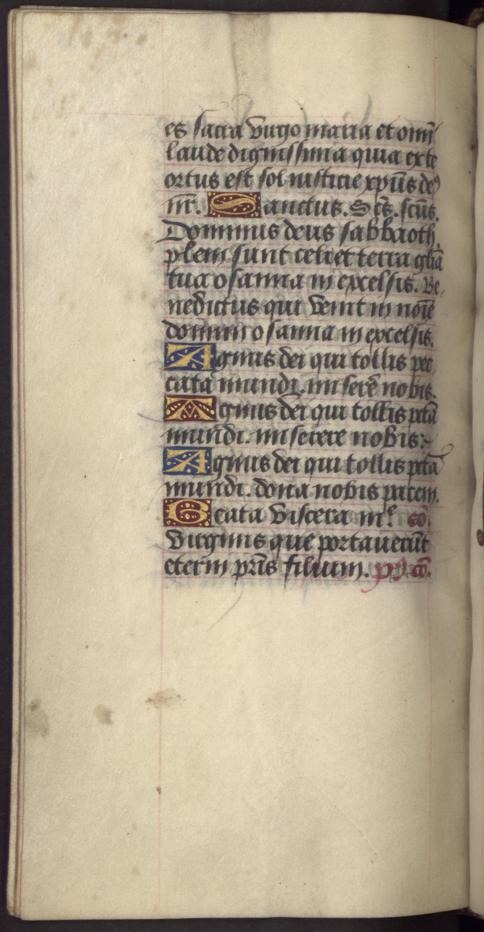 es sacra virgo maria et omī
laude dignissima quia ex te
ortus est sol iusticie xp̄us de⁹
nr̄. Sanctus. Sc̄s. scūs.
Dominus deus sabbaoth
pleni sunt celi et terra gl̄ia
tua osanna in excelsis. Be
nedictus qui venit in noīe
domini osanna in excelsis.
Agnus dei qui tollis pec
cata mundi. miserē nobis.
Agnus dei qui tollis pc̄tā
mundi. miserere nobis.
Agnus dei qui tollis pc̄tā
mundi. dona nobis pacem.
Beata viscera mᵉ. cō.
virginis que portaverūt
eterni pr̄is filium. p̄9. cō.